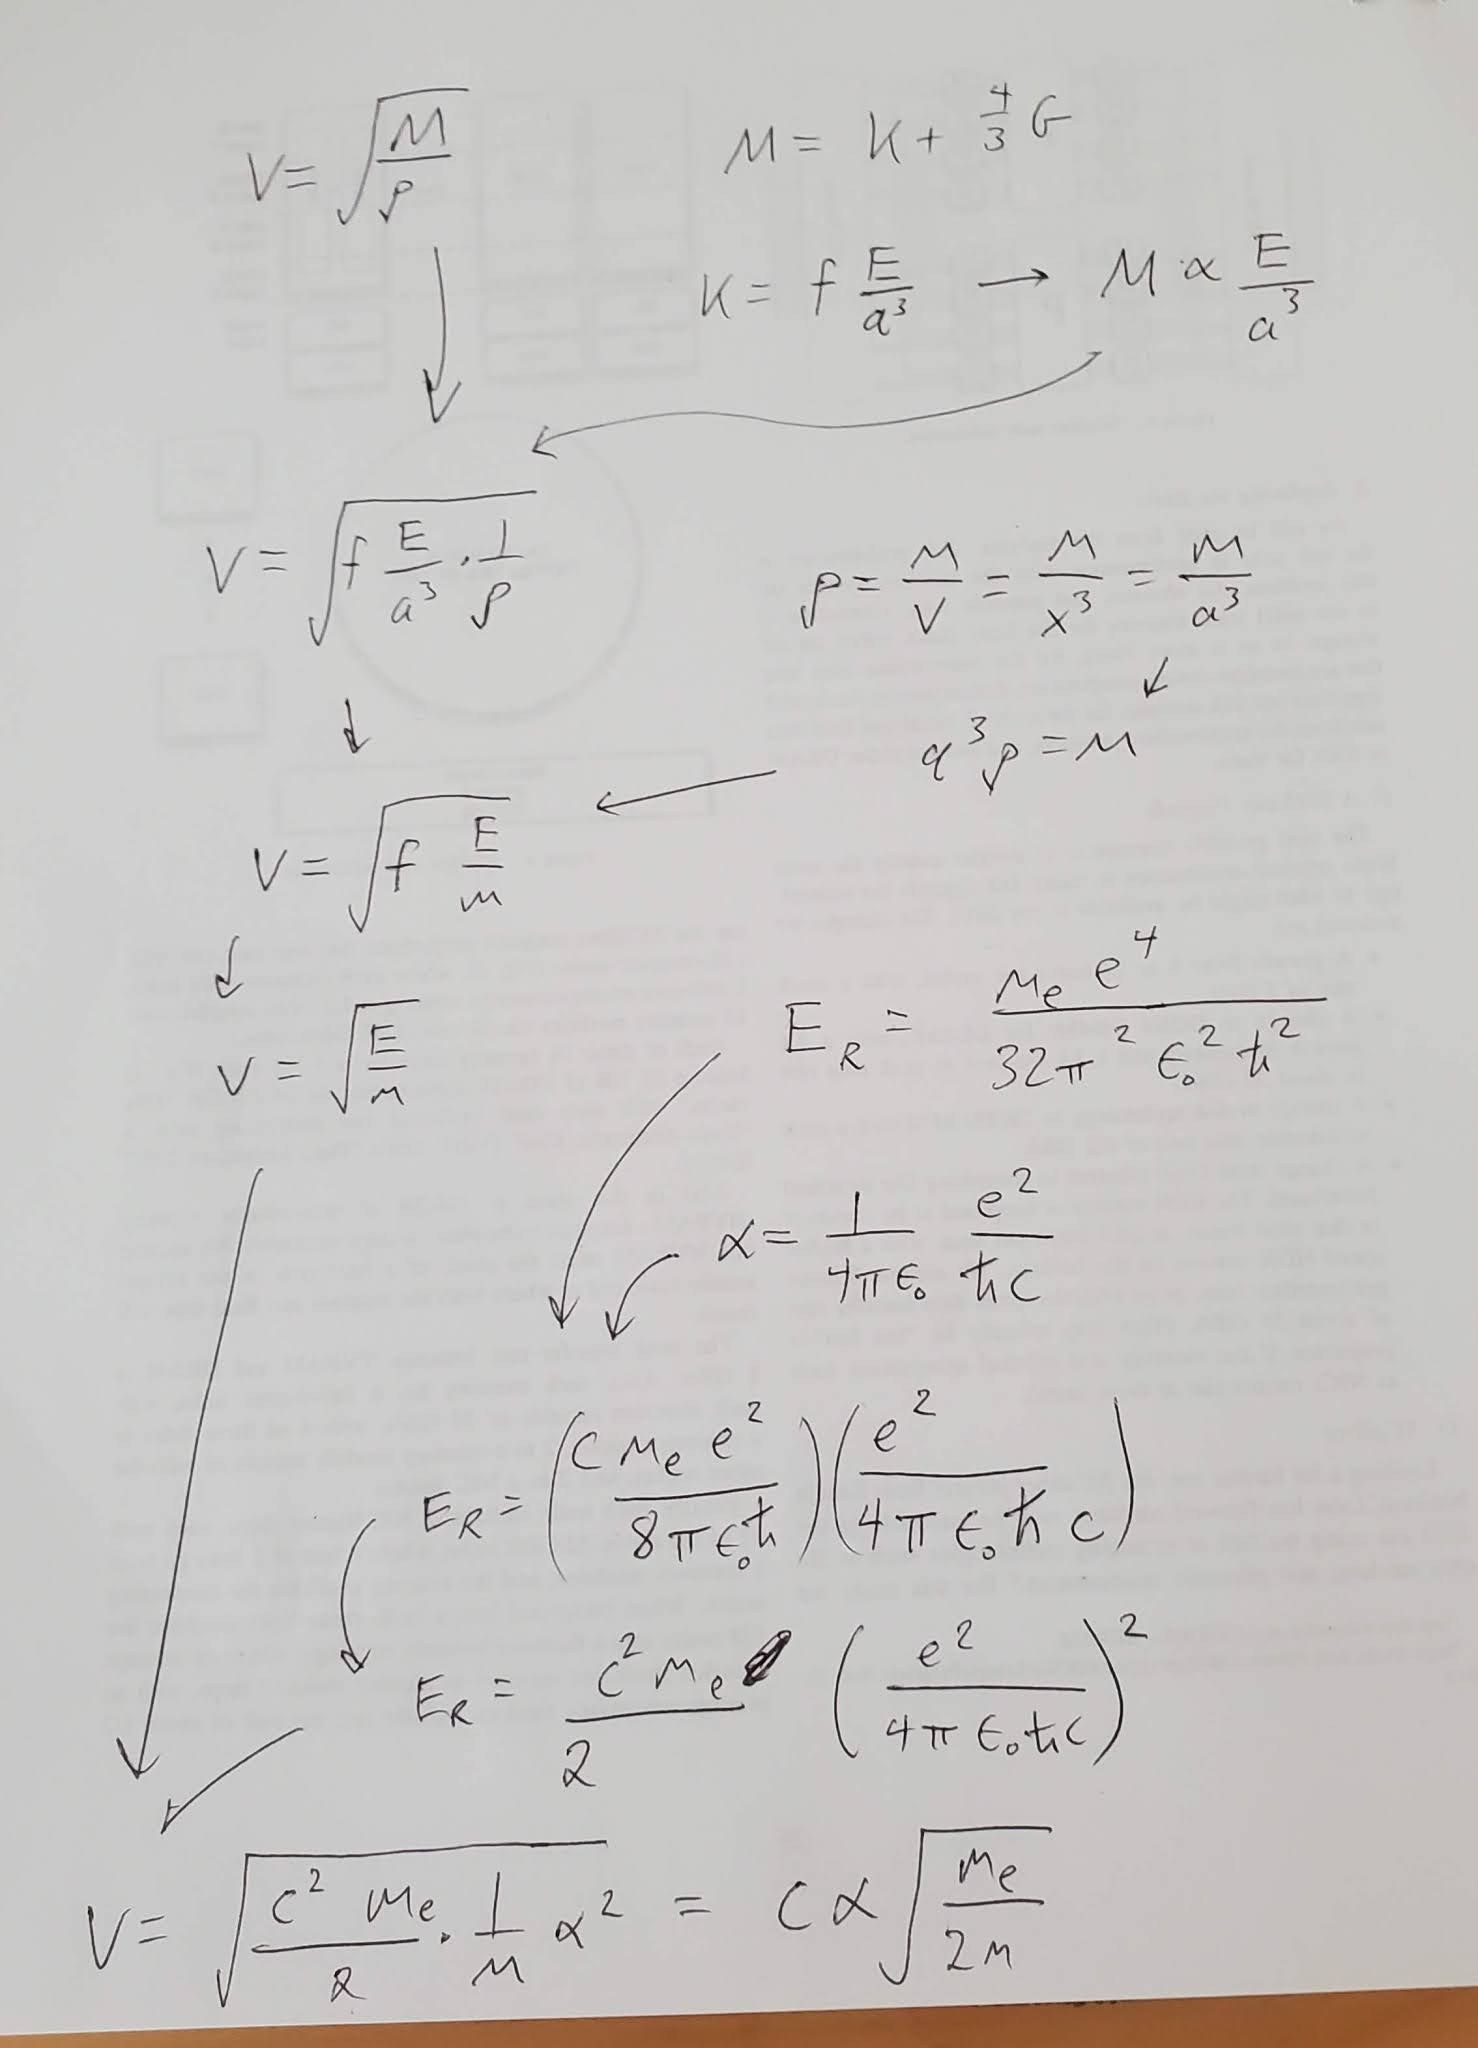 V = √(M/ρ)    M = K + 4/3 G
K = f E/a³ → M ∝ E/a³
V = √(f E/a³ · 1/ρ)    ρ = M/V = M/x³ = M/a³
a³ρ = M
V = √(f E/m)
E_R = m_e e⁴ / 32π² ε₀² ħ²
V = √(E/m)
α = 1/4πε₀ e²/ħc
E_R = (c m_e e² / 8πε₀ħ)(e² / 4πε₀ħc)
E_R = c² m_e / 2 (e² / 4πε₀ħc)²
V = √(c² m_e / 2 · 1/m α²) = cα √(m_e / 2m)